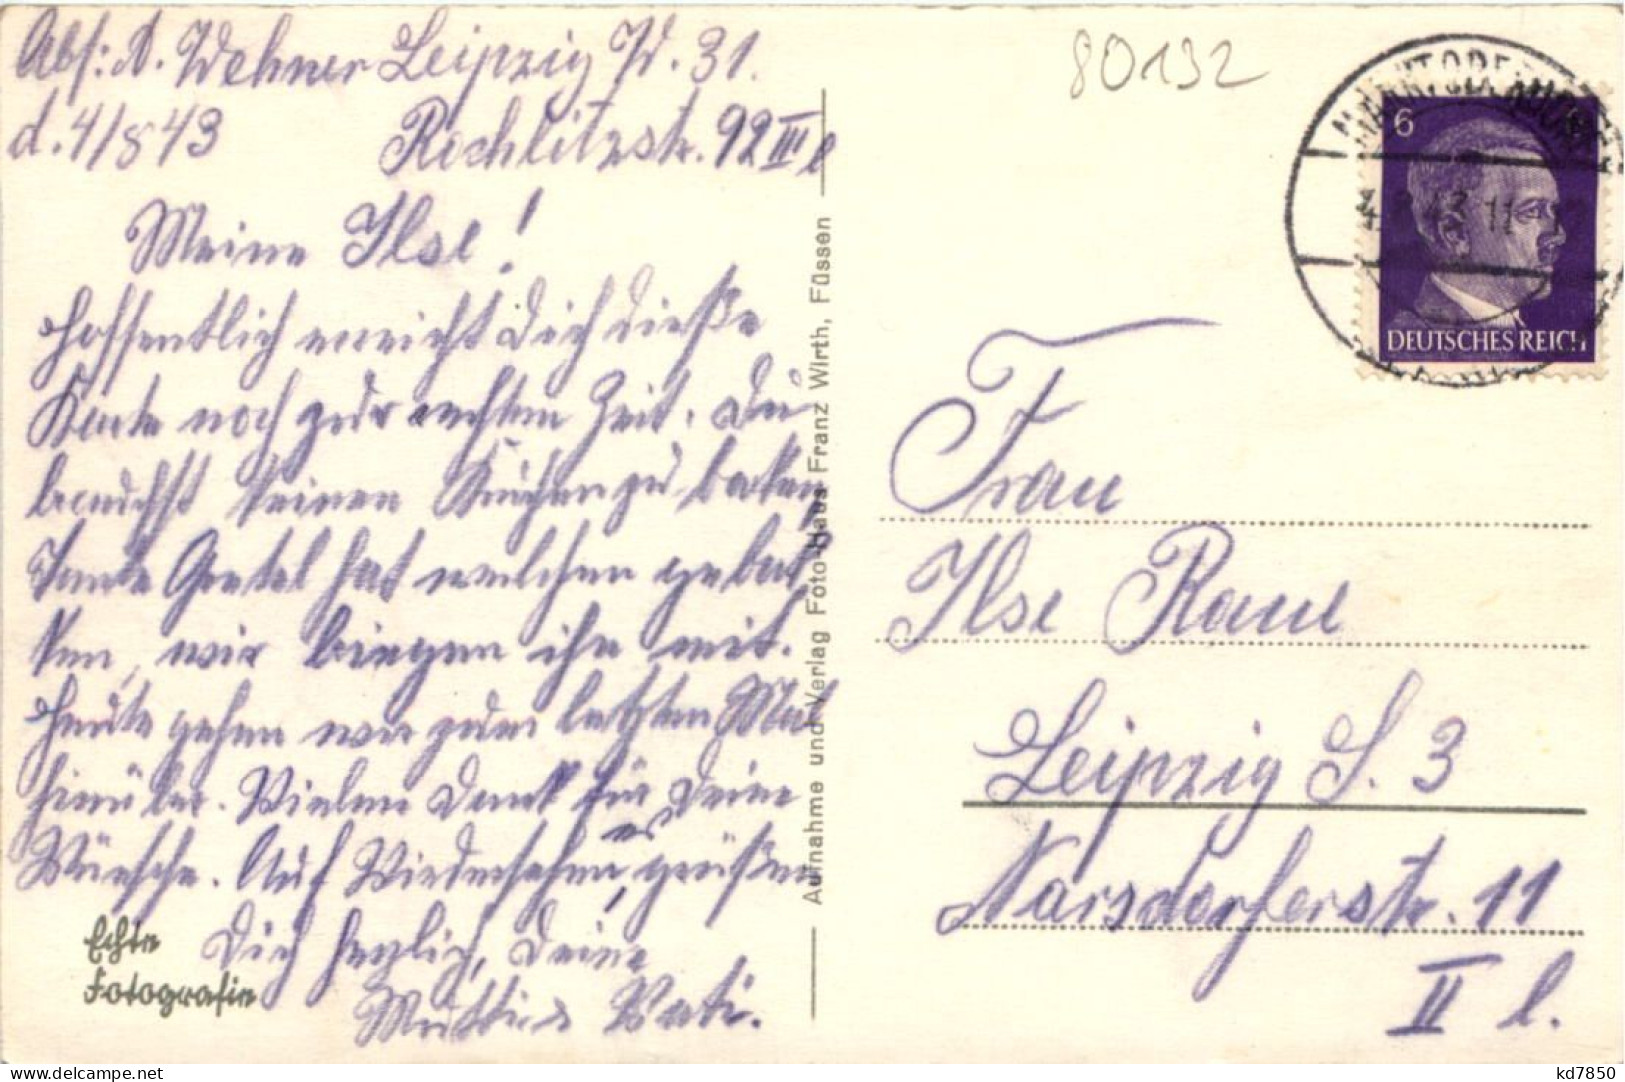 Abs: A. Wehner Leipzig W. 31.
d. 4/8 43 Rochlitzstr. 92 III l
Meine Ilse!
Hoffentlich erreicht Dich diese
Karte noch zur rechten Zeit. Du
brauchst keinen Kuchen zu backen
Tante Gretel hat welchen gebak
ken, wir bringen ihn mit.
Heute gehen wir zum letzten Mal
hinüber. Vielen Dank für Deine
Wünsche. Auf Wiedersehen, es grüßen
Dich herzlich, Deine
Mutti & Vati.
Echte
Fotografie
Aufnahme und Verlag Foto-Haus Franz Wirth, Füssen
80132
MARKTOBERDORF
43 11
6
DEUTSCHES REICH
Frau
Ilse Raue
Leipzig S. 3
Narsdorferstr. 11
II l.
www.delcampe.net
kd7850